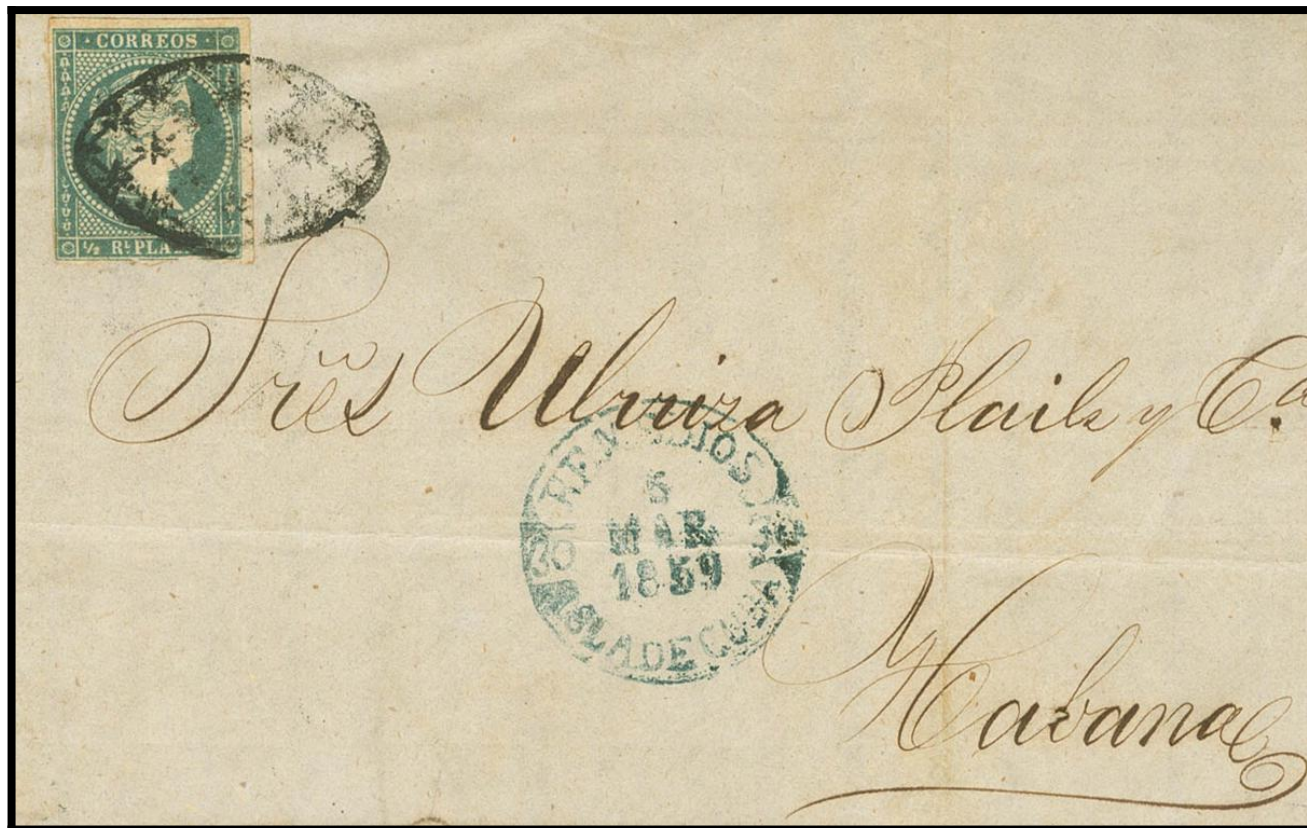 CORREOS
½ Rl PLA
Sres Ubrriza Plails y Ca.
REMEDIOS
5
MAR.
1859
30
ISLA DE CUBA
Habana